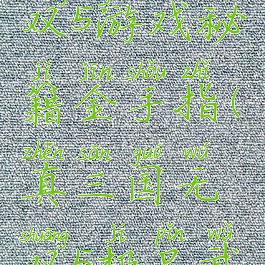 双5游戏秘
jí jīn shǒu zhǐ
籍金手指(
zhēn sān guó wú
真三国无
shuāng jí pǐn wǔ
双5极品武